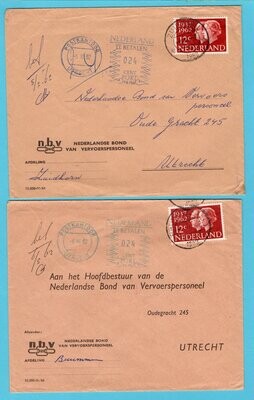 NEDERLAND
TE BETALEN
024
CENT
PORT
1937
1962
12c
NEDERLAND
Nederlandse Bond van Vervoers
personeel
Oude Gracht 245
Utrecht
n.b.v
NEDERLANDSE BOND
VAN VERVOERSPERSONEEL
AFDELING
NEDERLAND
TE BETALEN
024
CENT
PORT
1937
1962
12c
NEDERLAND
Aan het Hoofdbestuur van de
Nederlandse Bond van Vervoerspersoneel
Oudegracht 245
UTRECHT
Afzender:
n.b.v
NEDERLANDSE BOND
VAN VERVOERSPERSONEEL
AFDELING